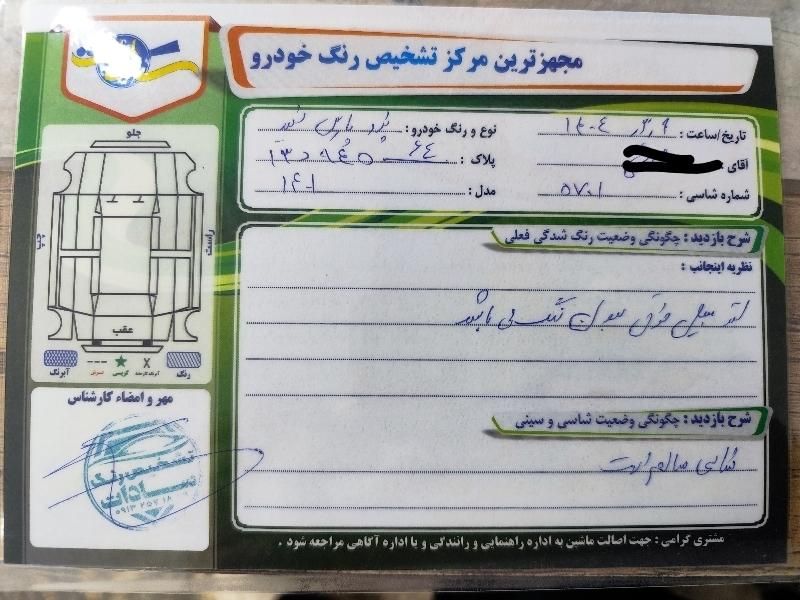 مجهزترین مرکز تشخیص رنگ خودرو
تاریخ/ساعت : ۱۴۰۴
نوع و رنگ خودرو :
آقای
پلاک : ۶۴
شماره شاسی : ۵۷۰۱
مدل : ۱۴۰۱
شرح بازدید : چگونگی وضعیت رنگ شدگی فعلی
نظریه اینجانب :
فوق بدون رنگ می باشد
شرح بازدید : چگونگی وضعیت شاسی و سینی
شاسی سالم است
مشتری گرامی : جهت اصالت ماشین به اداره راهنمایی و رانندگی و یا اداره آگاهی مراجعه شود .
جلو
راست
چپ
عقب
رنگ
آبرنگ
مهر و امضاء کارشناس
تشخیص رنگ
سادات